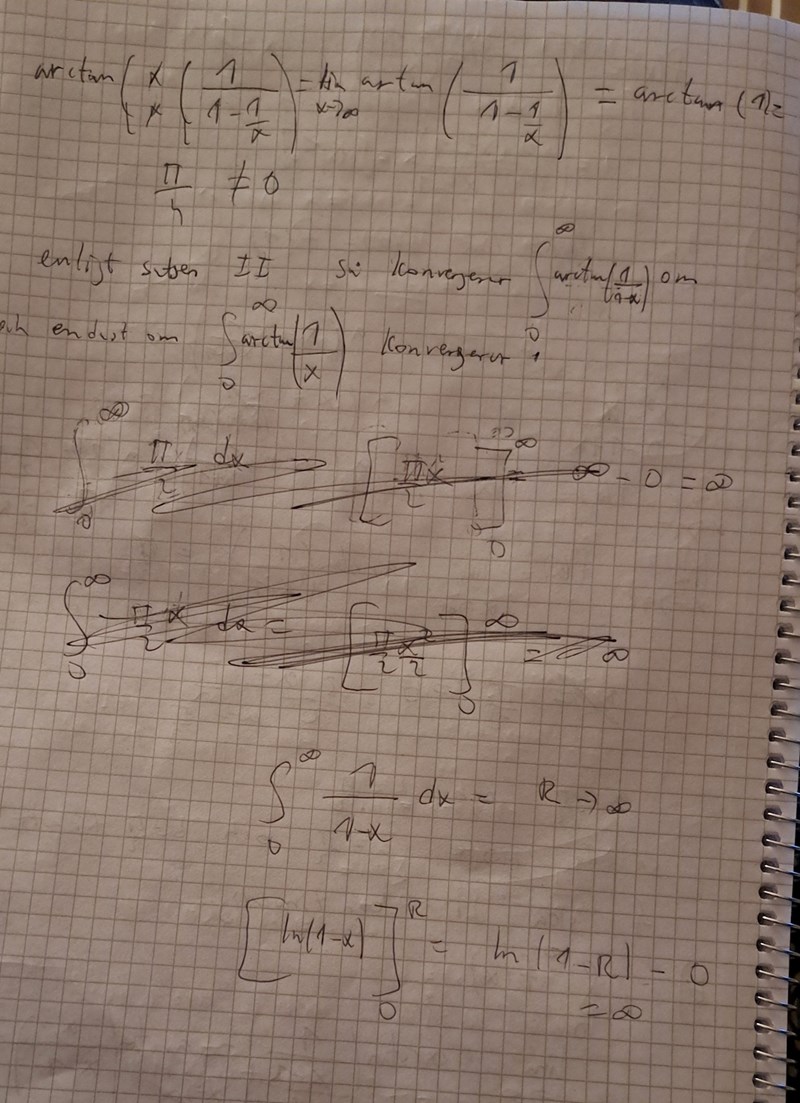 arctan ( x/x ( 1/(1 - 1/x) ) = lim x→∞ artan ( 1/(1 - 1/x) ) = arctan (1) =
π/4 ≠ 0
enligt satsen II så konvergerar ∫₀^∞ arctan(1/(1-x)) om
och endast om ∫₀^∞ arctan(1/x) konvergerar.
∫₀^∞ π/2 dx [πx/2]₀^∞ = ∞ - 0 = ∞
∫₀^∞ π/2 x dx = [π/2 x/2]₀^∞ = ∞
∫₀^∞ 1/(1-x) dx = R → ∞
[ln(1-x)]₀^R = ln(1-R) - 0
= ∞